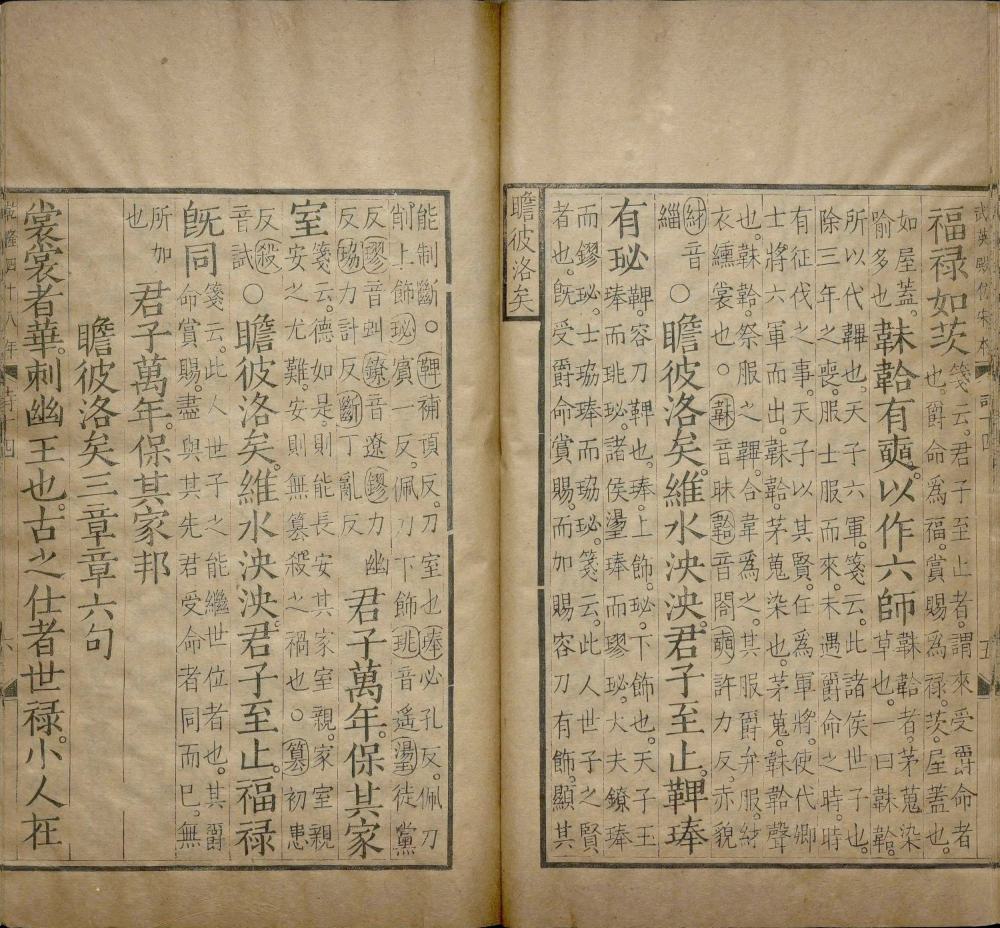 武英殿仿宋本 詩四 五
福禄如茨
箋云。君子至止者。謂來受爵命者
也。爵命為福。賞賜為禄。茨屋蓋也。
如屋蓋。
喻多也。
韎韐有奭。以作六師
韎韐者。茅蒐染
草也。一曰韎韐。
所以代韠也。天子六軍。箋云。此諸侯世子也。
除三年之喪。服士服而來。未遇爵命之時。時
有征伐之事。天子以其賢。任為軍將。使代卿
士將六軍而出。韎韐。茅蒐染也。茅蒐。韎韐聲
也。韎韐。祭服之韠。合韋為之。其服爵弁服。紂
衣纁裳也。○韎音昧韐音閤奭許力反。赤貌
紂音
緇
○瞻彼洛矣。維水泱泱。君子至止。鞞琫
有珌
鞞。容刀鞞也。琫。上飾。珌。下飾也。天子玉
琫而珧珌。諸侯璗琫而璆珌。大夫鐐琫
而鏐珌。士珕琫而珕珌。箋云。此人世子之賢
者也。既受爵命賞賜。而加賜容刀有飾。顯其
瞻彼洛矣
能制斷。○鞞補頂反。刀室也琫必孔反。佩刀
削上飾珌賓一反。佩刀下飾珧音遥璗徒黨
反璆音虯鐐音遼鏐力幽
反珕力計反斷丁亂反
君子萬年。保其家
室
箋云。德如是。則能長安其家室親。家室親
安之尤難。安則無篡殺之禍也。○篡初患
反殺
音試
○瞻彼洛矣。維水泱泱。君子至止。福禄
既同
箋云。此人世子之能繼世位者也。其爵
命賞賜。盡與其先君受命者同而巳。無
所加
也
君子萬年。保其家邦
瞻彼洛矣三章章六句
裳裳者華。刺幽王也。古之仕者世禄。小人在
乾隆四十八年 詩四 六